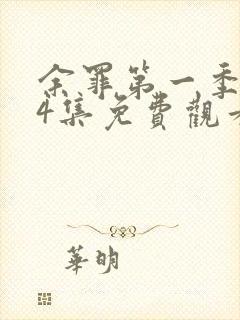 余罪第一季
4集免費觀
華明